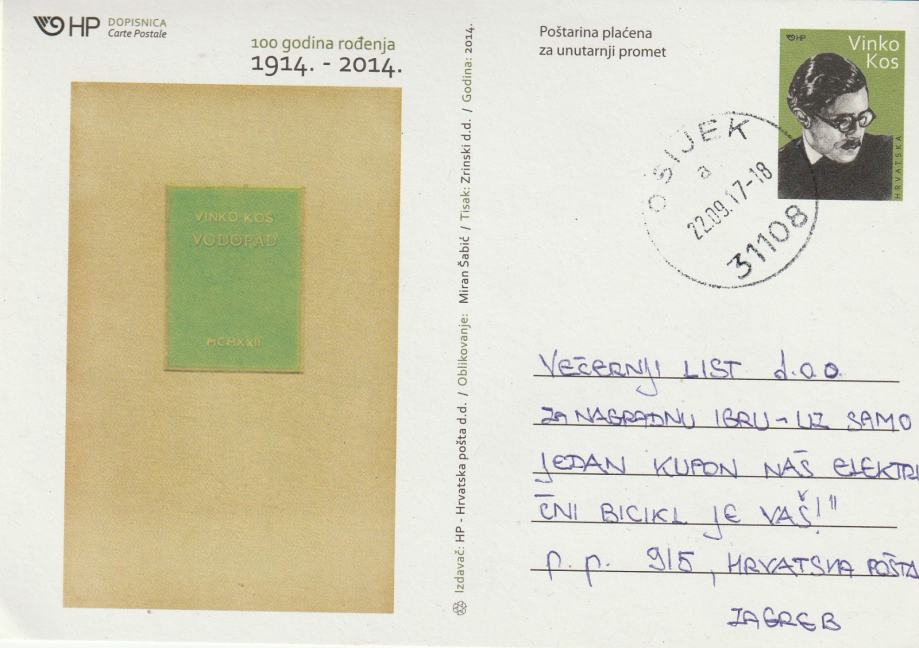 HP DOPISNICA
Carte Postale
100 godina rođenja
1914. - 2014.
VINKO KOS
VODOPAD
MCMXXII
Izdavač: HP - Hrvatska pošta d.d. / Oblikovanje: Miran Šabić / Tisak: Zrinski d.d. / Godina: 2014.
Poštarina plaćena
za unutarnji promet
HP
Vinko
Kos
HRVATSKA
OSIJEK
a
22.09.17-18
31108
VEČERNJI LIST d.o.o.
ZA NAGRADNU IGRU - UZ SAMO
JEDAN KUPON NAŠ ELEKTRI
ČNI BICIKL JE VAŠ!"
p.p. 915, HRVATSKA POŠTA
ZAGREB